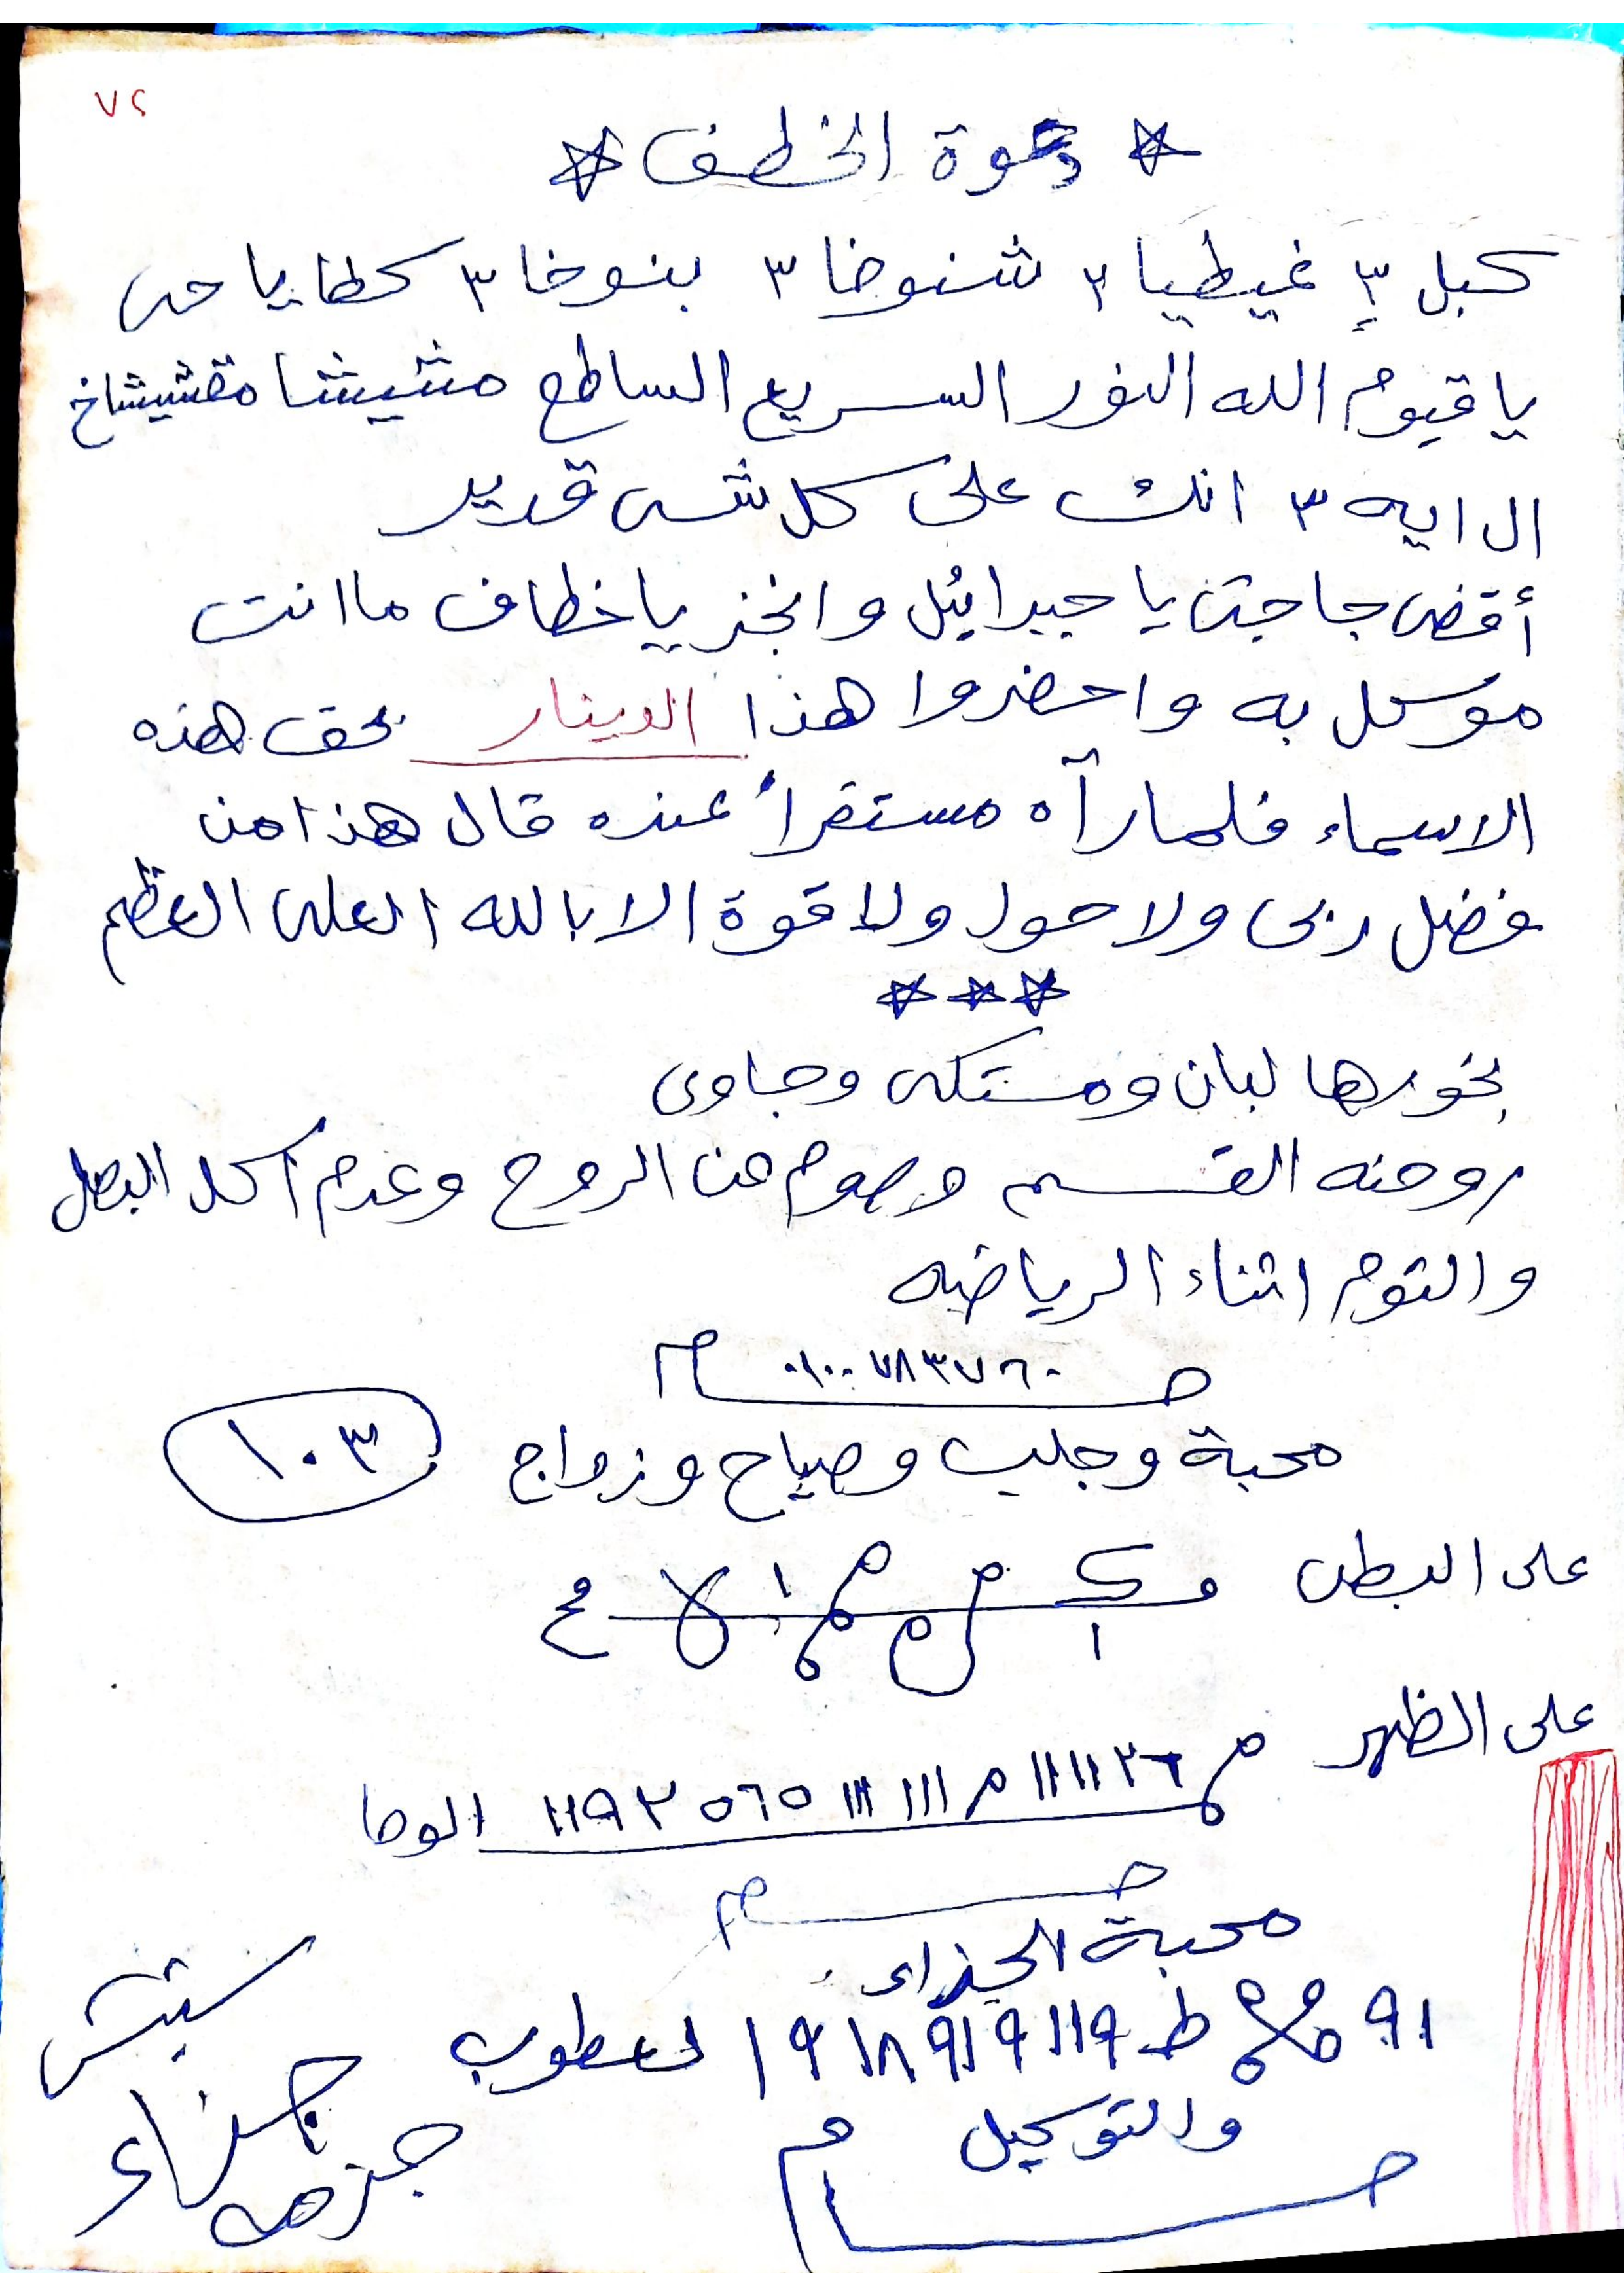 ٧٢
دعوة الخطف
كبل ٣ غيطيا ٣ شنوخا ٣ بنوخا ٣ كطا يا حى
يا قيوم الله النور السريع الساطع مشيشا مقشيشاخ
ال ايه ٣ انك على كل شى قدير
أقضى حاجتى يا جبرائيل وانجز يا خطاف ما انت
موكل به واحضروا هذا الدينار بحق هذه
الاسماء فلما رآه مستقرأ عنده قال هذا من
فضل ربى ولا حول ولا قوة الا بالله العلى العظيم
بخورها لبان ومستكى وجاوى
روحنه القسم وصوم عن الروح وعدم اكل البصل
والتوم اثناء الرياضه
٠١٠٠٧٨٣٧٦٠
محبة وجلب وصياح وزواج ١٠٣
على البطن
على الظهر
م ١١١١٢٦ م ١١١ ١١١ ٥٦٥ ١١٩٢ الوحا
محبة الحذاء
٩١ ط ١٩١٨٩١٩١١٩
والتوكيل
حذاء
جزمه